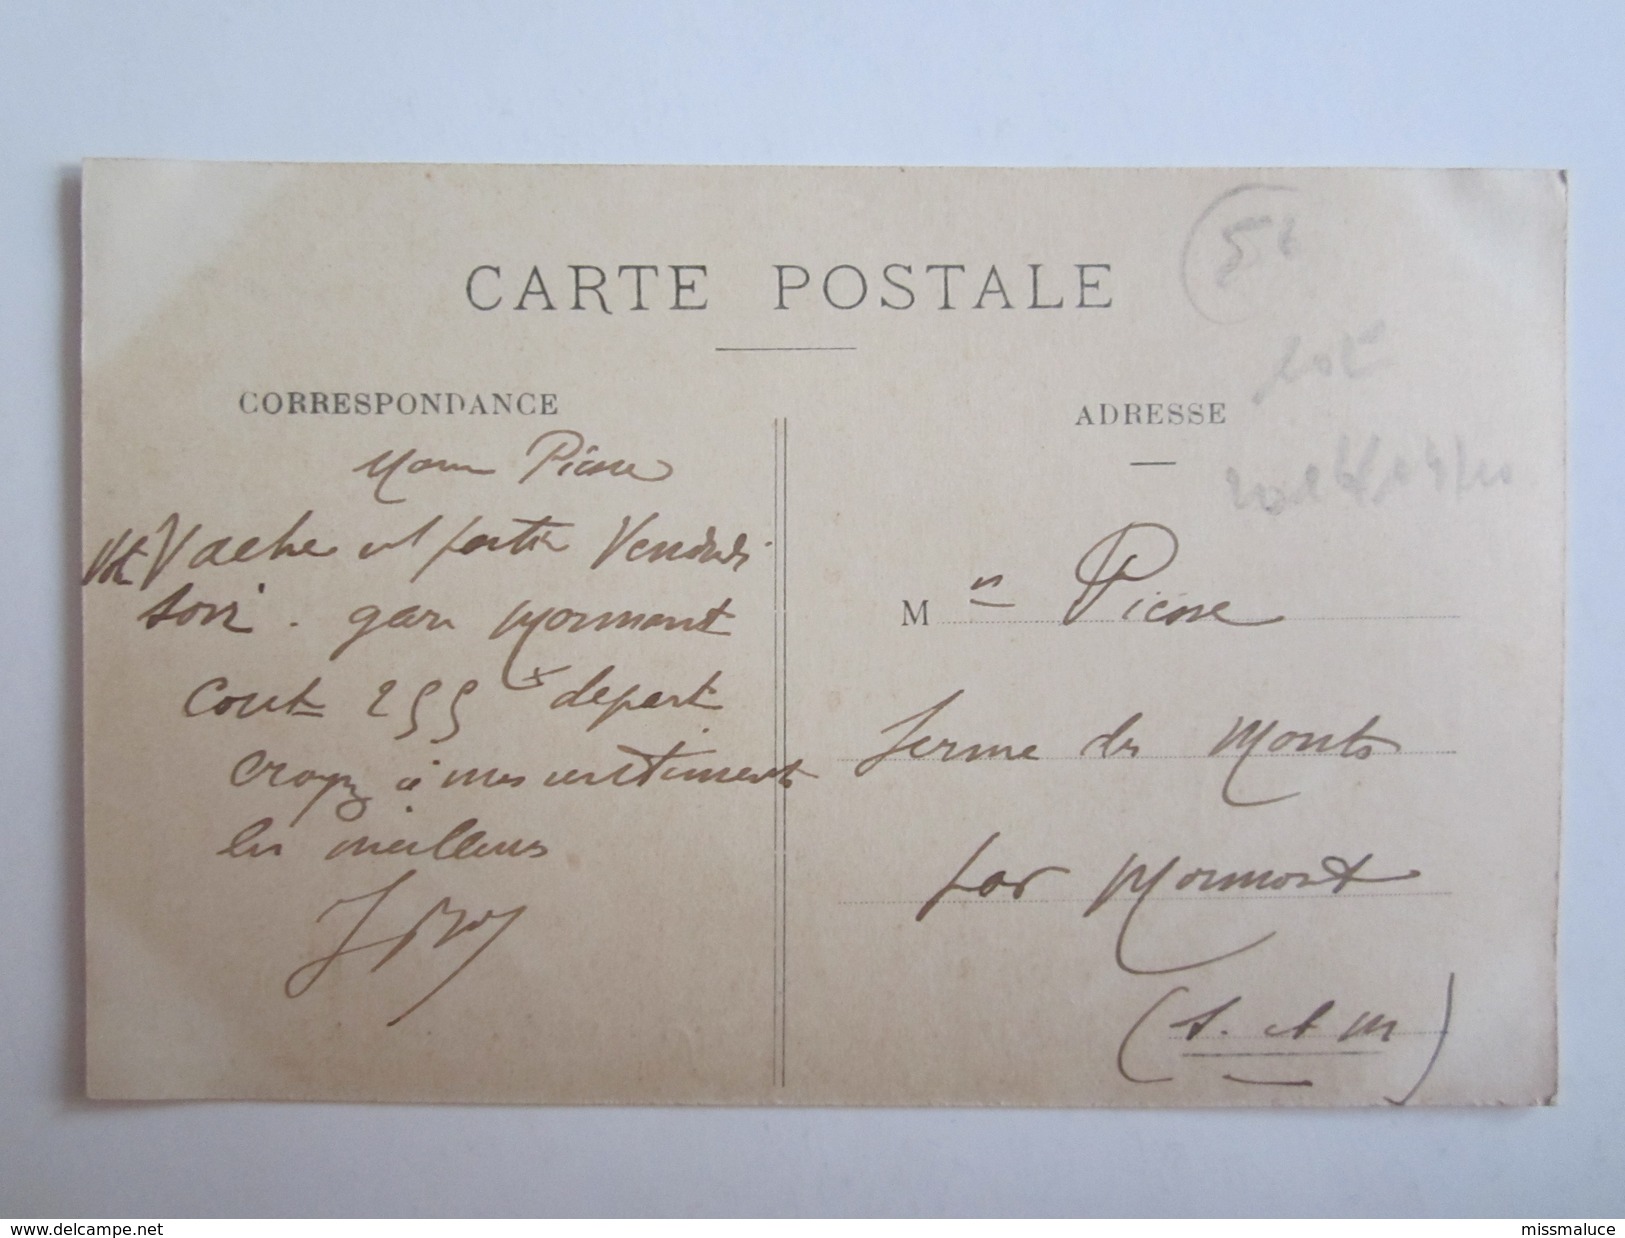 CARTE POSTALE
CORRESPONDANCE
Pierre
Vot Vache est partie Vendredi
soir. gare Mormant
Cout 255 f depart
Croyez à mes sentiments
les meilleurs
ADRESSE
Mr Pierre
ferme des Monts
par Mormant
(S. et M)
www.delcampe.net
missmaluce